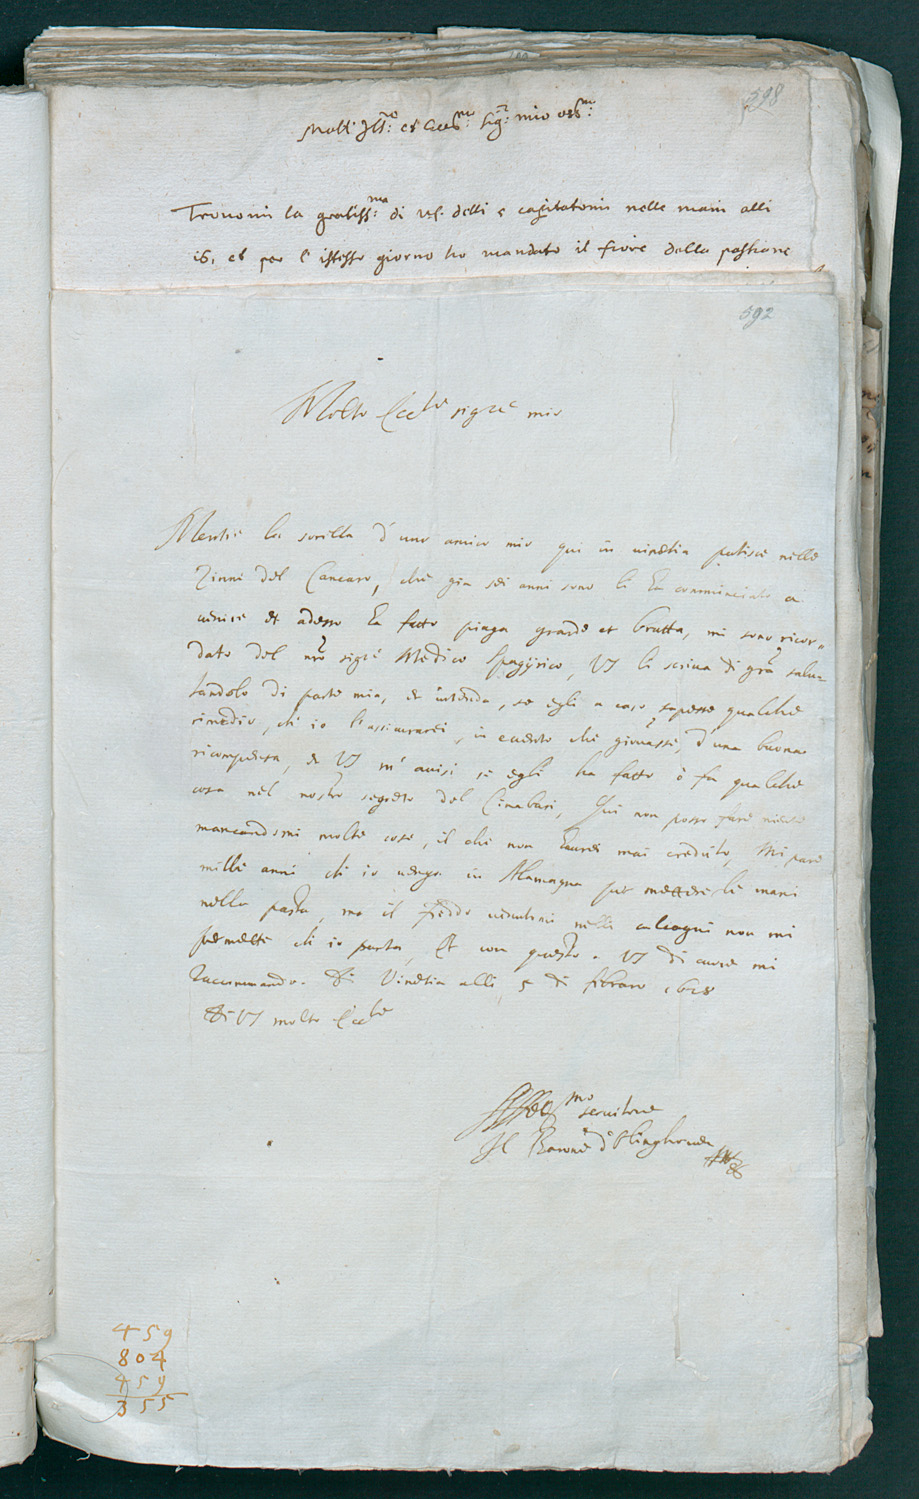 598
Molt' Ill.re et Ecc.mo Sig.r mio oss.mo
Trovomi la gratiss.ma di VS. delli 5 capitatomi nelle mani alli
16, et per l'istesso giorno ho mandato il fiore della passione
592
Molto Ecc.te sig.re mio
Mentre la sorella d'uno amico mio qui in vinetia patisce nelle
Zinne del Cancaro, che gia sei anni sono li ha comminciato a
venire et adesso ha fatto piaga grande et brutta, mi sono ricor„
dato del nro sigre Medico Spagÿrico, VS li scriva di gra salu„
tandolo di parte mia, et intenda, se egli a caso sapesse qualche
rimedio, ch' io l'assicurarei, in evento che giovasse, d'una buona
ricompensa, et VS m' avisi se egli ha fatto ò fa qualche
cosa nel nostro segreto del Cinabari, Qui non posso fare niente
mancandomi molte cose, il che non havrei mai creduto, Mi pare
mille anni ch' io venga in Alamagna per mettere le mani
nella pasta, ma il freddo nelle calcagni non mi
permette ch' io parta, Et con questo a VS di cuore mi
raccommando. Di Vinetia alli 5 di febraro 1628
Di VS molto Ecc.te
Aff.mo servitore
Il Barone d'
459
804
459
355